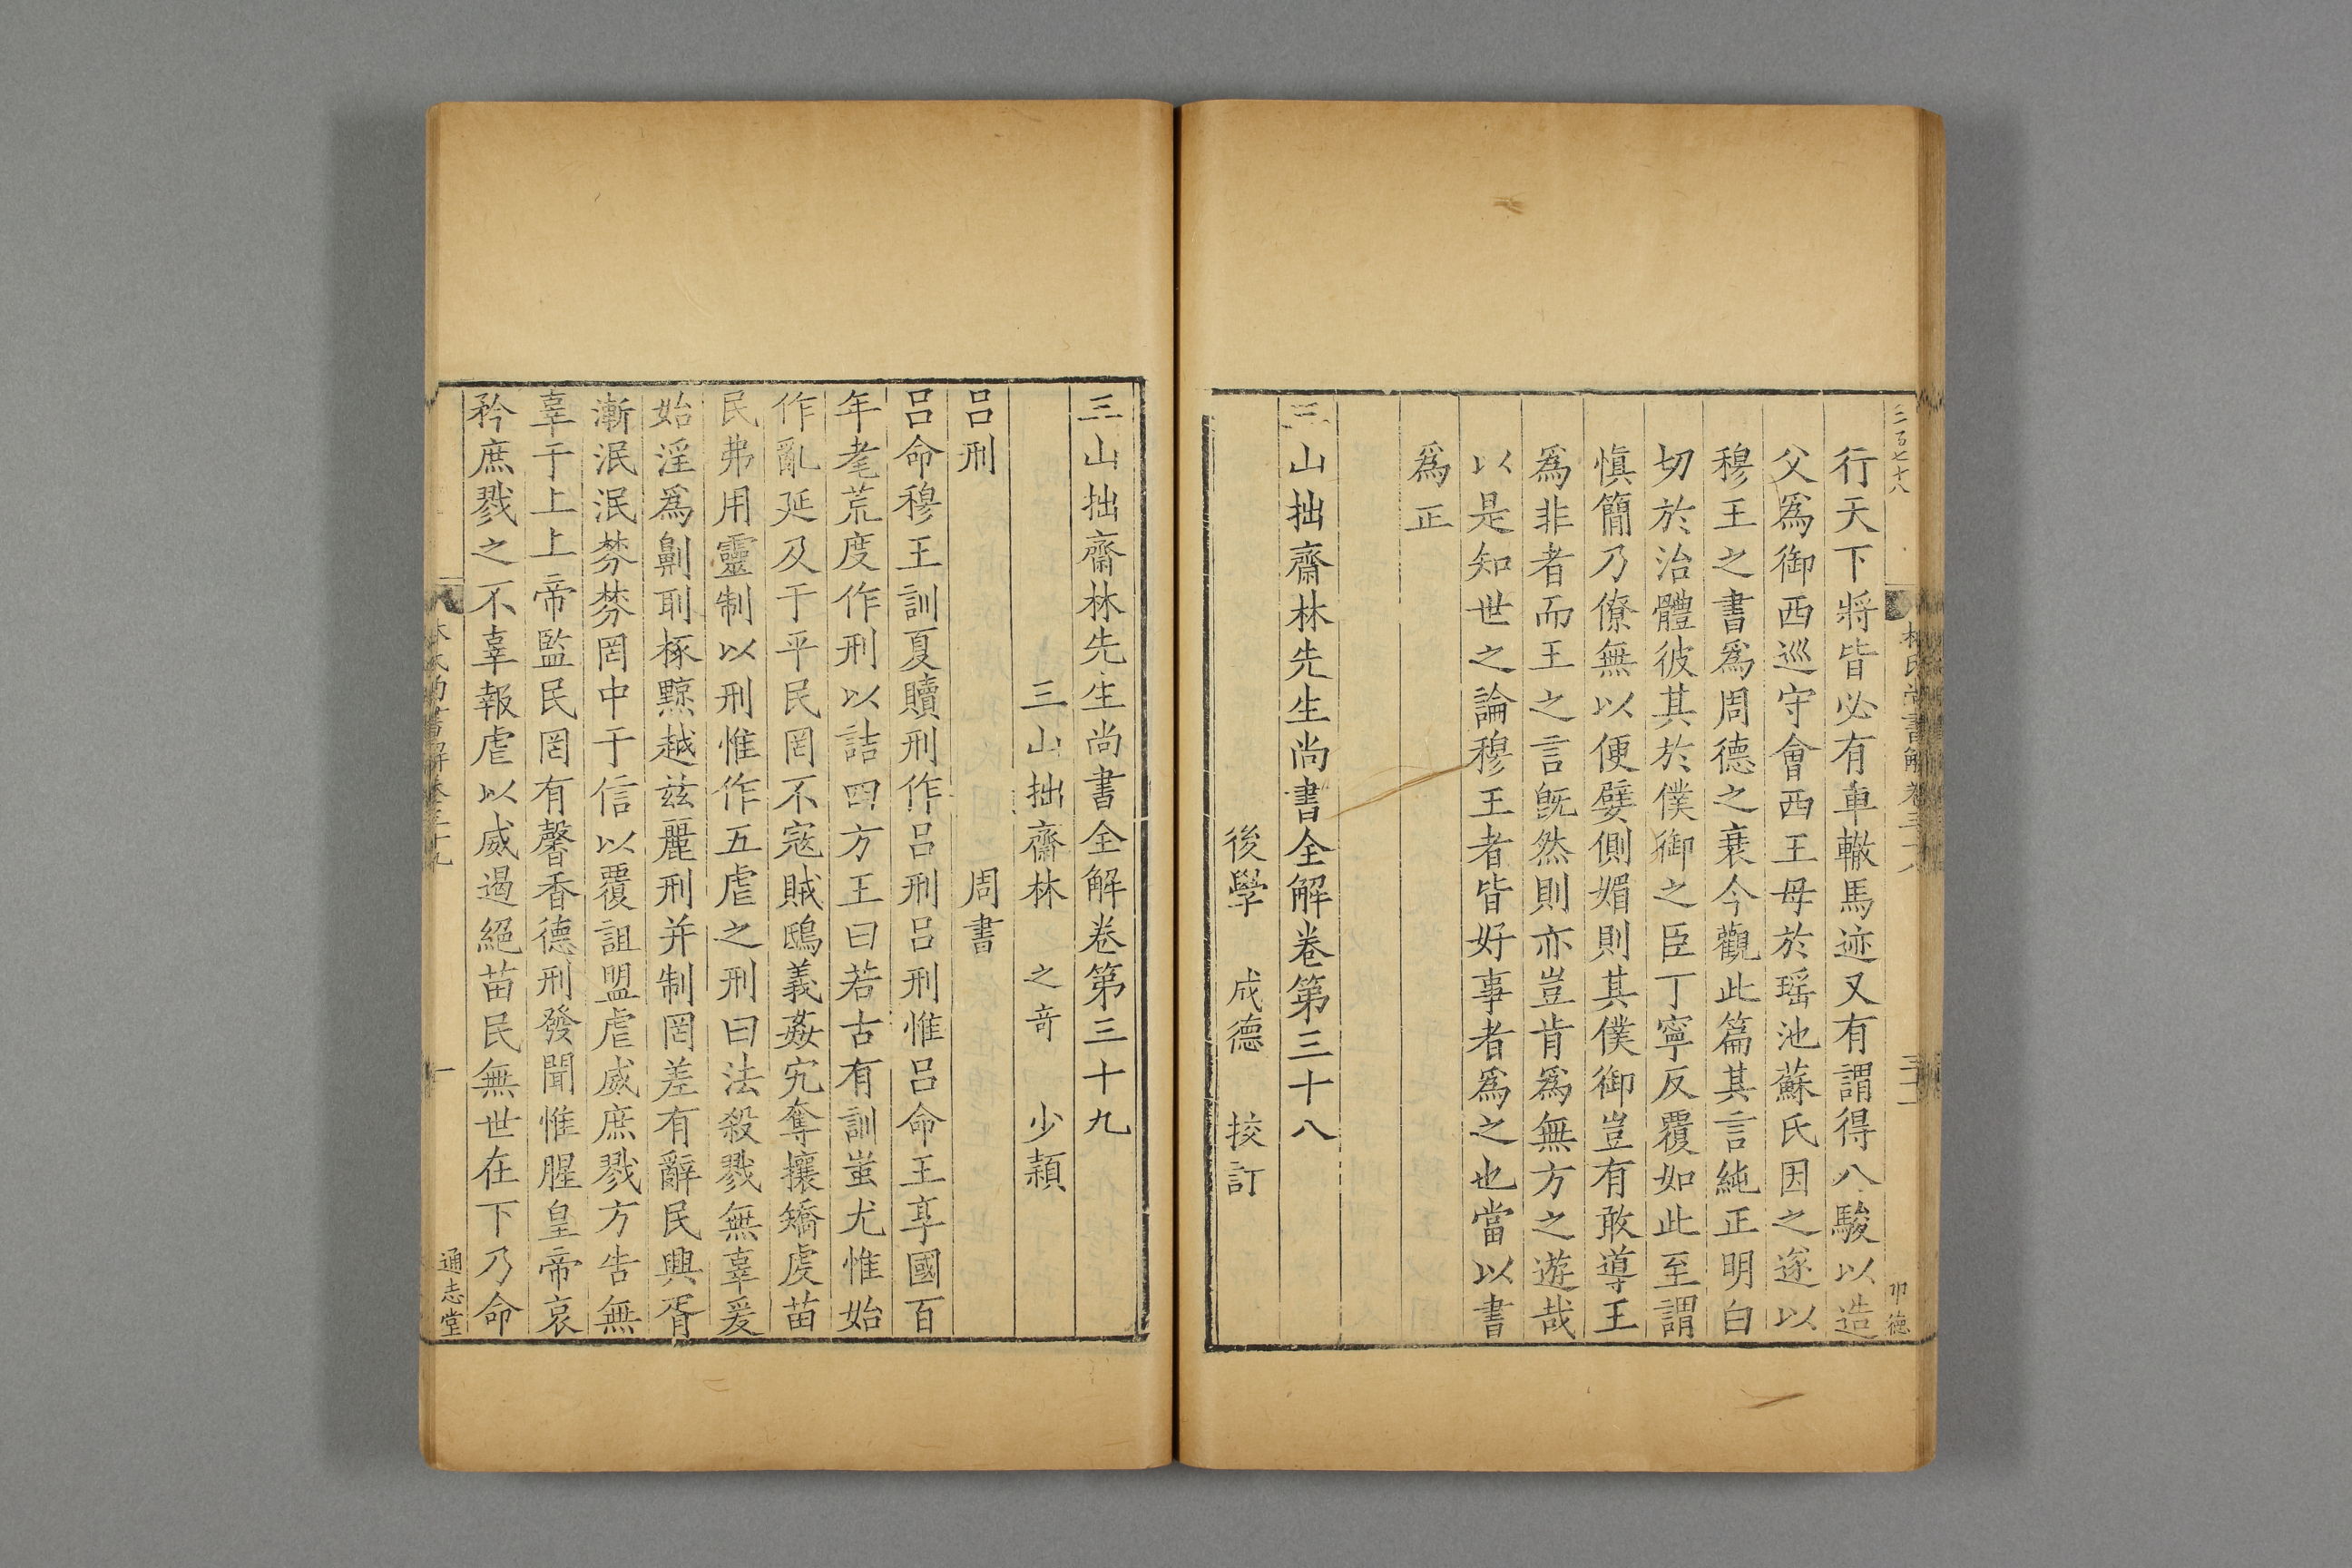 二百七十八
林氏尚書解卷三十八
行天下將皆必有車轍馬迹又有謂得八駿以造
父爲御西巡守會西王母於瑶池蘇氏因之遂以
穆王之書爲周德之衰今觀此篇其言純正明白
切於治體彼其於僕御之臣丁寧反覆如此至謂
愼簡乃僚無以便嬖側媚則其僕御豈有敢導王
爲非者而王之言旣然則亦豈肯爲無方之遊哉
以是知世之論穆王者皆好事者爲之也當以書
爲正
三山拙齋林先生尚書全解卷第三十八
後學 成德 挍訂
三山拙齋林先生尚書全解卷第三十九
三山拙齋林 之奇 少穎
吕刑 周書
吕命穆王訓夏贖刑作吕刑吕刑惟吕命王享國百
年耄荒度作刑以詰四方王曰若古有訓蚩尤惟始
作亂延及于平民罔不寇賊鴟義姦宄奪攘矯虔苗
民弗用靈制以刑惟作五虐之刑曰法殺戮無辜爰
始淫爲劓刵椓黥越兹麗刑并制罔差有辭民興胥
漸泯泯棼棼罔中于信以覆詛盟虐威庶戮方告無
辜于上上帝監民罔有馨香德刑發聞惟腥皇帝哀
矜庶戮之不辜報虐以威遏絕苗民無世在下乃命
林氏尚書解卷三十九
一
通志堂